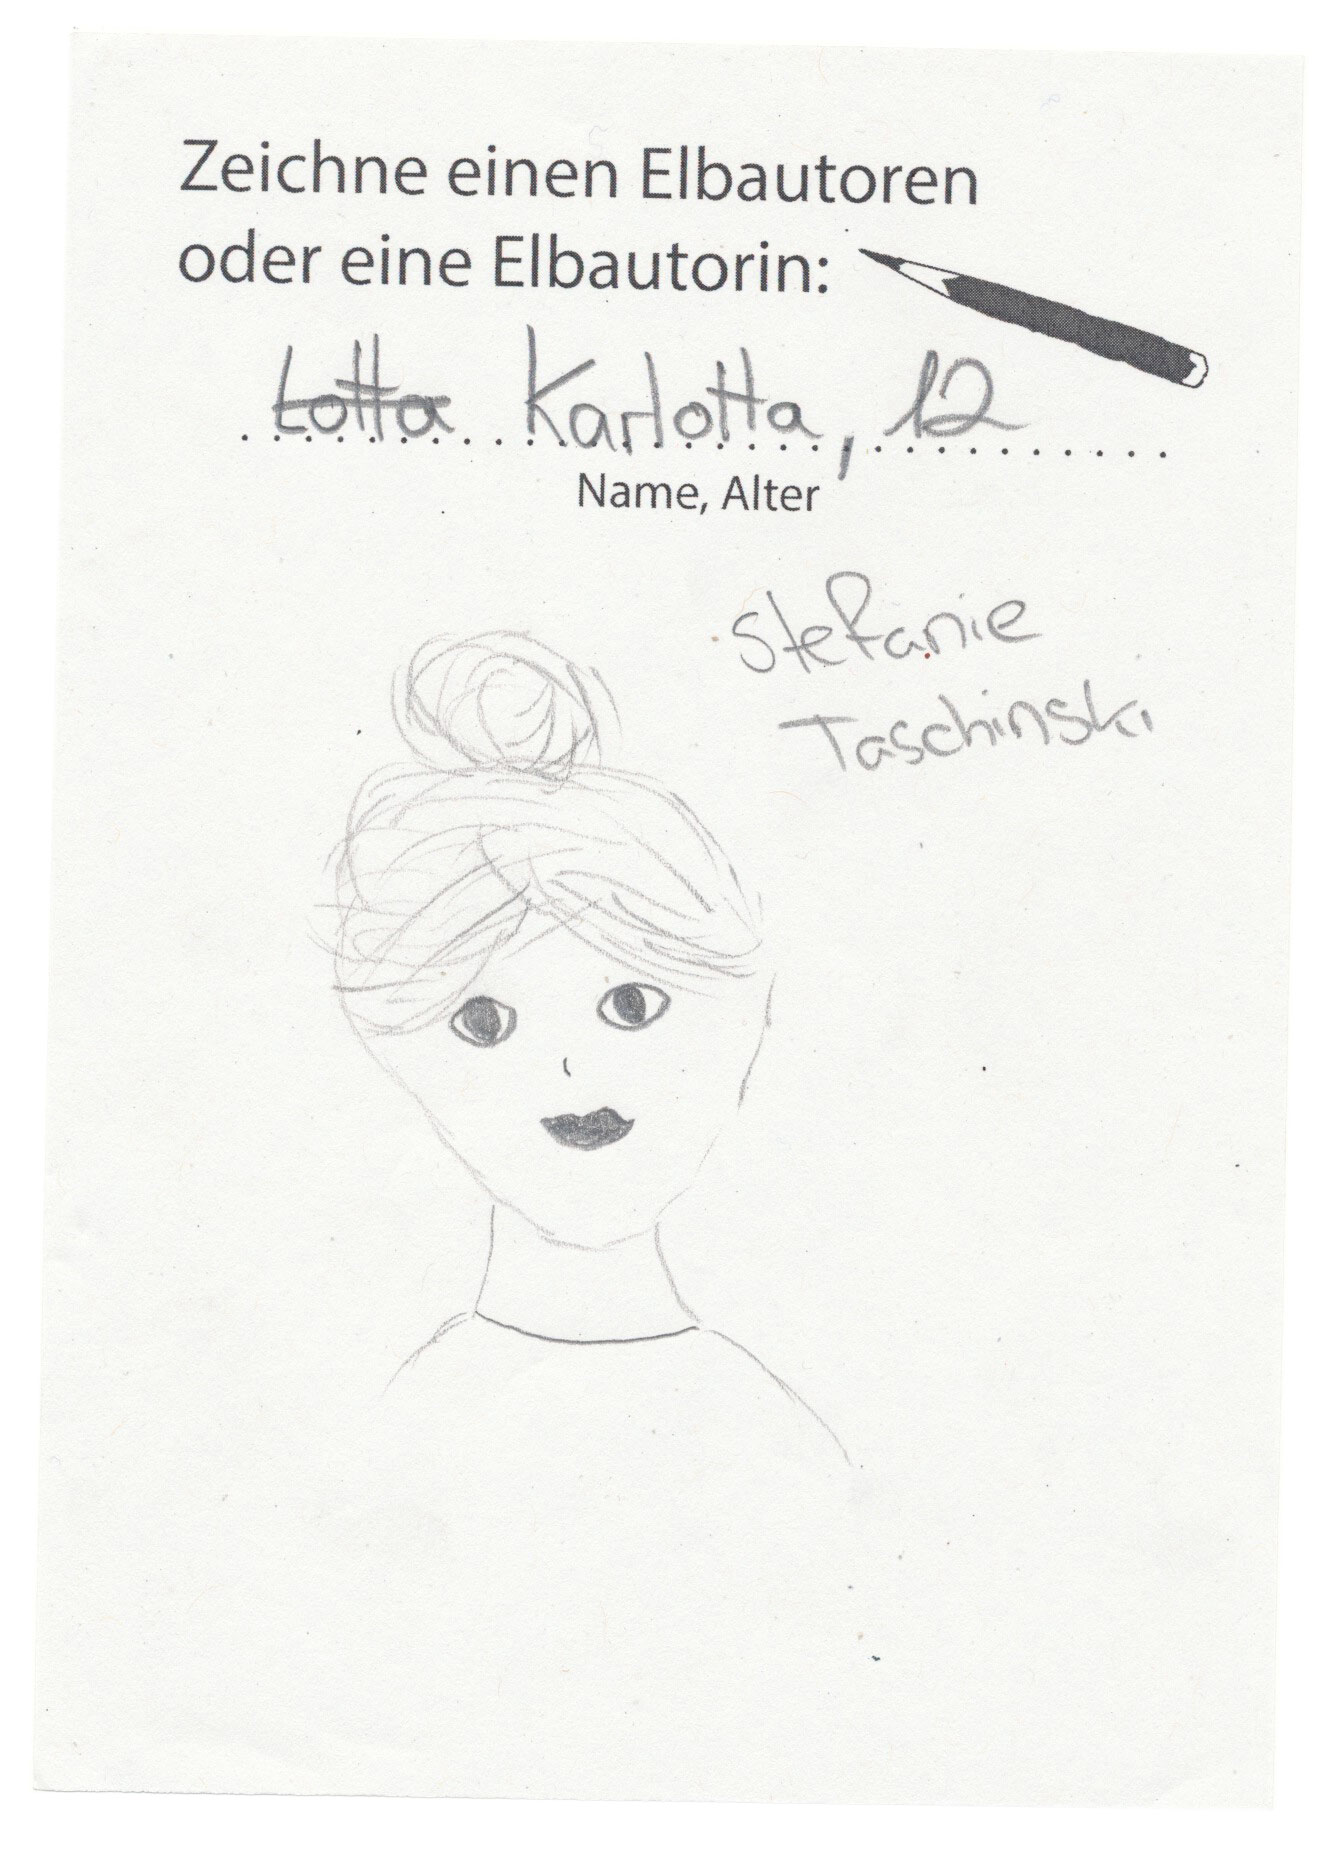 Zeichne einen Elbautoren
oder eine Elbautorin:
Lotta Karlotta, 12
Name, Alter
Stefanie
Taschinski